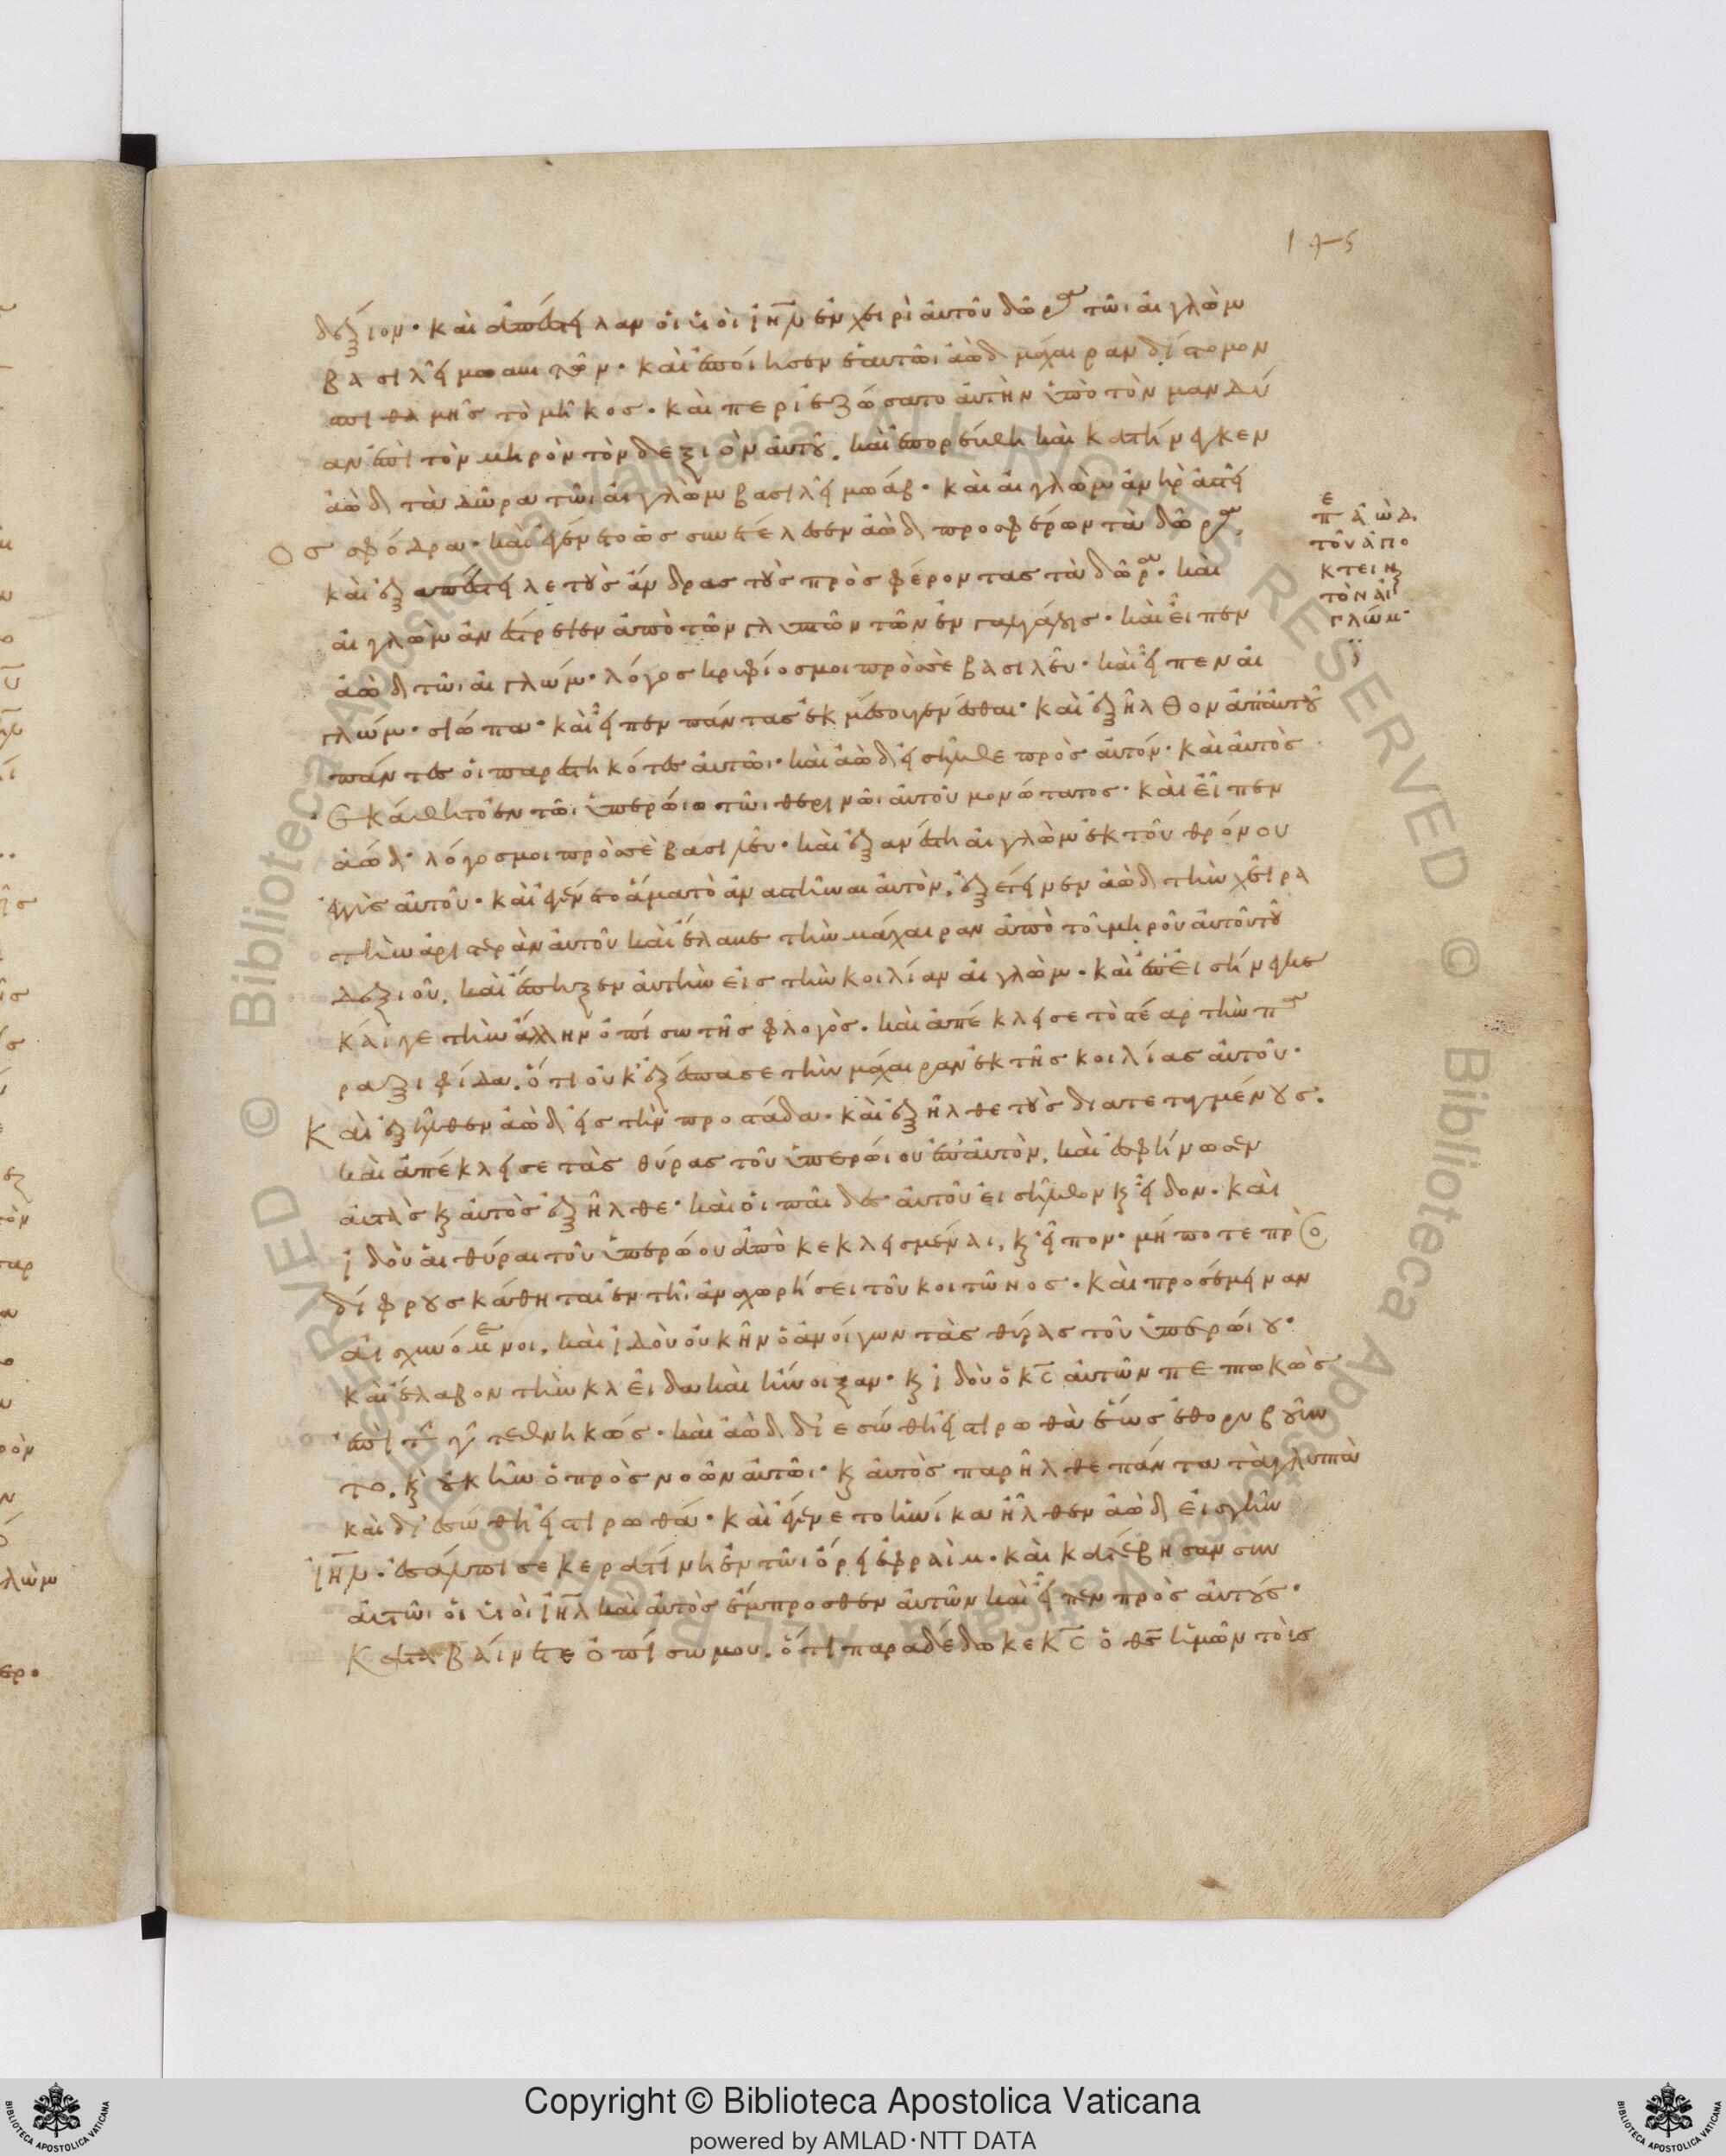 196
δεξιόν· καὶ ἀπέστειλαν οἱ υἱοὶ ἰηλ ἐν χειρὶ ἀυτοῦ δῶρα τῶι ἀιγλὼμ
βασιλεῖ μωαβιτῶν· καὶ ἐποίησεν ἑαυτῶι ἀὼδ μάχαιραν δίστομον
σπιθαμῆς τὸ μῆκος· καὶ περιεζώσατο ἀυτὴν ὑπὸ τὸν μανδύ
αν ἐπὶ τὸν μηρὸν τὸν δεξιὸν ἀυτοῦ. καὶ ἐπορεύθη καὶ κατήνεγκεν
ἀὼδ τὰ δῶρα τῶι ἀιγλὼμ βασιλεῖ μωάβ· καὶ ἀιγλὼμ ἀνὴρ ἀστεῖ
ος σφόδρα· καὶ ἐγένετο ὡς συνετέλεσεν ἀὼδ προσφέρων τὰ δῶρα.
καὶ ἐξαπέστειλε τοὺς ἄνδρας τοὺς προσφέροντας τὰ δῶρα· καὶ
ἀιγλὼμ ἀνέστρεψεν ἀπὸ τῶν γλυπτῶν τῶν ἐν γαλγάλοις· καὶ εἶπεν
ἀὼδ τῶι ἀιγλώμ· λόγος κρυφίος μοι πρὸς σὲ βασιλεῦ· καὶ εἶπεν ἀι
γλώμ· σιώπα· καὶ εἶπεν πάντας ἐκ μέσου γενέσθαι· καὶ ἐξῆλθον ἀπ ἀυτοῦ
πάντες οἱ παρεστηκότες ἀυτῶι· καὶ ἀὼδ εἰσῆλθε πρὸς ἀυτόν· καὶ ἀυτὸς
ἐκάθητο ἐν τῶι ὑπερώιω τῶι θερινῶι ἀυτοῦ μονώτατος· καὶ εἶπεν
ἀώδ· λόγος μοι πρὸς σὲ βασιλεῦ· καὶ ἐξανέστη ἀιγλὼμ ἐκ τοῦ θρόνου
ἐγγὺς ἀυτοῦ· καὶ ἐγένετο ἅμα τὸ ἀναστῆναι ἀυτὸν, ἐξέτεινεν ἀὼδ τὴν χεῖρα
τὴν ἀριστερὰν ἀυτοῦ καὶ ἔλαβε τὴν μάχαιραν ἀπὸ τοῦ μηροῦ ἀυτοῦ τοῦ
δεξιοῦ, καὶ ἔπηξεν ἀυτὴν εἰς τὴν κοιλίαν ἀιγλώμ· καὶ ἐπεισήνεγκε
καίγε τὴν ἄλλην ὀπίσω τῆς φλογὸς· καὶ ἀπέκλεισε τὸ στέαρ τὴν πα
ραξιφίδα. ὅτι οὐκ ἐξέσπασε τὴν μάχαιραν ἐκ τῆς κοιλίας ἀυτοῦ·
Καὶ ἐξῆλθεν ἀὼδ εἰς τὴν προστάδα· καὶ ἐξῆλθε τοὺς διατεταγμένους.
καὶ ἀπέκλεισε τὰς θύρας τοῦ ὑπερώιου ἐπ ἀυτὸν, καὶ ἐσφήνωσεν
ἀυτὰς κ ἀυτὸς ἐξῆλθε· καὶ οἱ παῖδες ἀυτοῦ εἰσῆλθον κ εἶδον· καὶ
ἰδοὺ ἀι θύραι τοῦ ὑπερώου ἀποκεκλεισμέναι, κ εἶπον· μήποτε πρὸς
δίφρους κάθηται ἐν τῆ ἀποχωρήσει τοῦ κοιτῶνος· καὶ προσέμειναν
αἰσχυνόμενοι, καὶ ἰδοὺ οὐκ ἦν ὁ ἀνοίγων τὰς θύρας τοῦ ὑπερώιου·
καὶ ἔλαβον τὴν κλεῖδα καὶ ἤνοιξαν· κ ἰδοὺ ὁ κς ἀυτῶν πεπτωκὼς
ἐπὶ τὴν γῆν τεθνηκώς· καὶ ἀὼδ διεσώθη εἰς σειρωθὰ ἕως ἐθορυβοῦν
το. κ οὐκ ἦν ὁ προσνοῶν ἀυτῶι· κ ἀυτὸς παρῆλθε πάντα τὰ γλυπτὰ
καὶ διεσώθη εἰς σειρωθά· καὶ ἐγένετο ἡνίκα ἦλθεν ἀὼδ εἰς γῆν
ἰηλ. ἐσάλπισε κερατίνη ἐν τῶι ὄρει ἐφραίμ· καὶ κατέβησαν συν
ἀυτῶι οἱ υἱοὶ ἰηλ καὶ ἀυτὸς ἔμπροσθεν ἀυτῶν καὶ εἶπεν πρὸς ἀυτούς·
Καταβαίνετε ὀπίσω μου. ὅτι παραδέδωκε κς ὁ θς ἡμῶν τοὺς
ε
π ἀὼδ
τοῦ ἀπο
κτείν
τὸν ἀι
γλώμ·
Copyright © Biblioteca Apostolica Vaticana
powered by AMLAD·NTT DATA